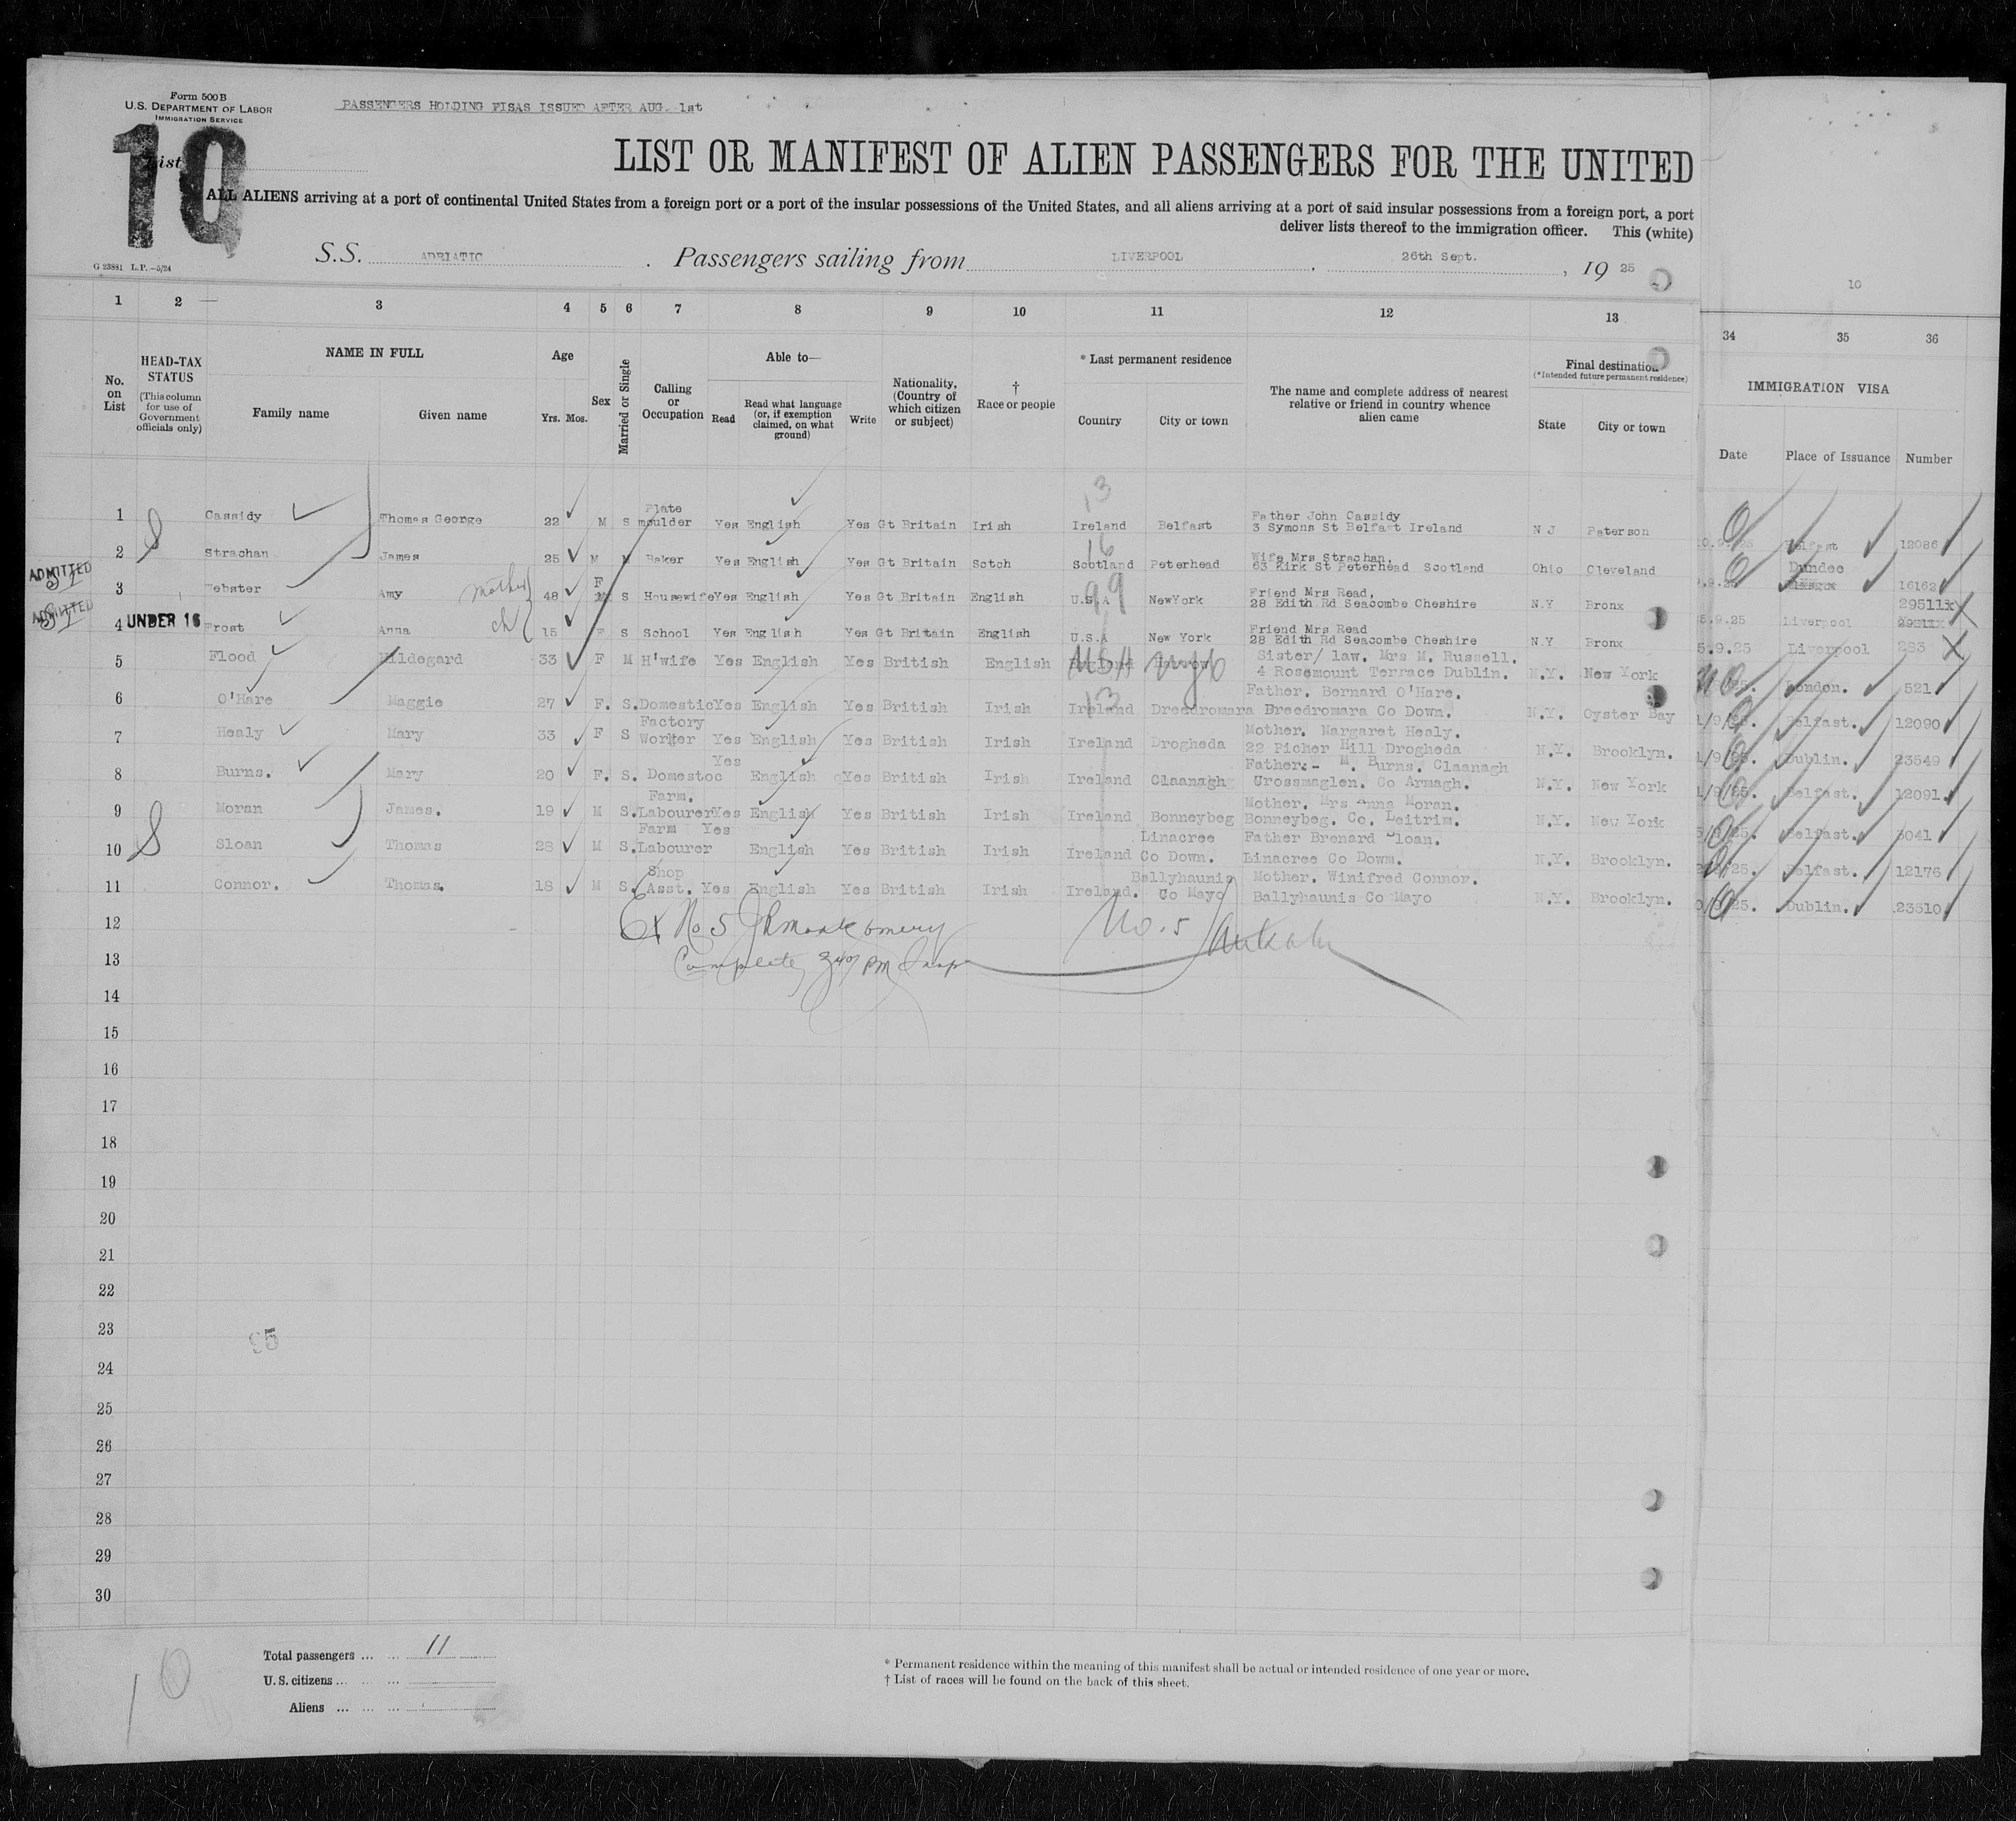 Form 500 B
U.S. DEPARTMENT OF LABOR
IMMIGRATION SERVICE
PASSENGERS HOLDING FISAS ISSUED AFTER AUG. 1st
10
List
LIST OR MANIFEST OF ALIEN PASSENGERS FOR THE UNITED
ALL ALIENS arriving at a port of continental United States from a foreign port or a port of the insular possessions of the United States, and all aliens arriving at a port of said insular possessions from a foreign port, a port
deliver lists thereof to the immigration officer. This (white)
S.S. ADRIATIC. Passengers sailing from LIVERPOOL, 26th Sept., 19 25
G 23881 L.P.—5/24
10
1 2 3 4 5 6 7 8 9 10 11 12 13 34 35 36
No. on List
HEAD-TAX STATUS (This column for use of Government officials only)
NAME IN FULL
Family name Given name
Age
Yrs. Mos.
Sex
Married or Single
Calling or Occupation
Able to—
Read Read what language (or, if exemption claimed, on what ground) Write
Nationality, (Country of which citizen or subject)
† Race or people
* Last permanent residence
Country City or town
The name and complete address of nearest relative or friend in country whence alien came
Final destination
(*Intended future permanent residence)
State City or town
IMMIGRATION VISA
Date Place of Issuance Number
13
1 Cassidy Thomas George 22 M S Plate moulder Yes English Yes Gt Britain Irish Ireland Belfast Father John Cassidy 3 Symons St Belfast Ireland N J Paterson Belfast 12086
16
2 Strachan James 25 M M Baker Yes English Yes Gt Britain Scotch Scotland Peterhead Wife Mrs Strachan, 63 Kirk St Peterhead Scotland Ohio Cleveland Dundee 16162
99
ADMITTED 3 Webster Amy mother 48 F S Housewife Yes English Yes Gt Britain English U.S.A NewYork Friend Mrs Read, 28 Edith Rd Seacombe Cheshire N.Y Bronx 25.9.25 Liverpool 29511x
ADMITTED 4 UNDER 16 Frost Anna ch 15 F S School Yes English Yes Gt Britain English U.S.A New York Friend Mrs Read 28 Edith Rd Seacombe Cheshire N.Y Bronx 5.9.25 Liverpool 283
5 Flood Hildegard 33 F M H'wife Yes English Yes British English USA nyc Sister/ law. Mrs M. Russell. 4 Rosemount Terrace Dublin. N.Y. New York London. 521
13
6 O'Hare Maggie 27 F. S. Domestic Yes English Yes British Irish Ireland Dreedromara Father. Bernard O'Hare. Dreedromara Co Down. N.Y. Oyster Bay 1/9/25. Belfast. 12090
7 Healy Mary 33 F S Factory Worker Yes English Yes British Irish Ireland Drogheda Mother. Margaret Healy. 22 Picher Hill Drogheda N.Y. Brooklyn. 1/9/25. Dublin. 23549
8 Burns. Mary 20 F. S. Domestoc Yes English Yes British Irish Ireland Claanagh Father.- M. Burns. Claanagh Crossmaglen. Co Armagh. N.Y. New York 1/9/25. Belfast. 12091
9 Moran James. 19 M S. Farm. Labourer Yes English Yes British Irish Ireland Bonneybeg Mother. Mrs Anna Moran. Bonneybeg. Co. Leitrim. N.Y. New York Belfast. 3041
10 Sloan Thomas 28 M S. Farm Labourer Yes English Yes British Irish Ireland Linacree Co Down. Father Brenard Sloan. Linacree Co Down. N.Y. Brooklyn. Belfast. 12176
11 Connor. Thomas. 18 M S. Shop Asst. Yes English Yes British Irish Ireland. Ballyhaunis Co Mayo Mother. Winifred Connor. Ballyhaunis Co Mayo N.Y. Brooklyn. Dublin. 23510
12 Ex No 5 JR Montgomery No. 5
13 Complete 3 40 PM
14
15
16
17
18
19
20
21
22
23
95
24
25
26
27
28
29
30
10
Total passengers 11
U.S. citizens
Aliens
* Permanent residence within the meaning of this manifest shall be actual or intended residence of one year or more.
† List of races will be found on the back of this sheet.